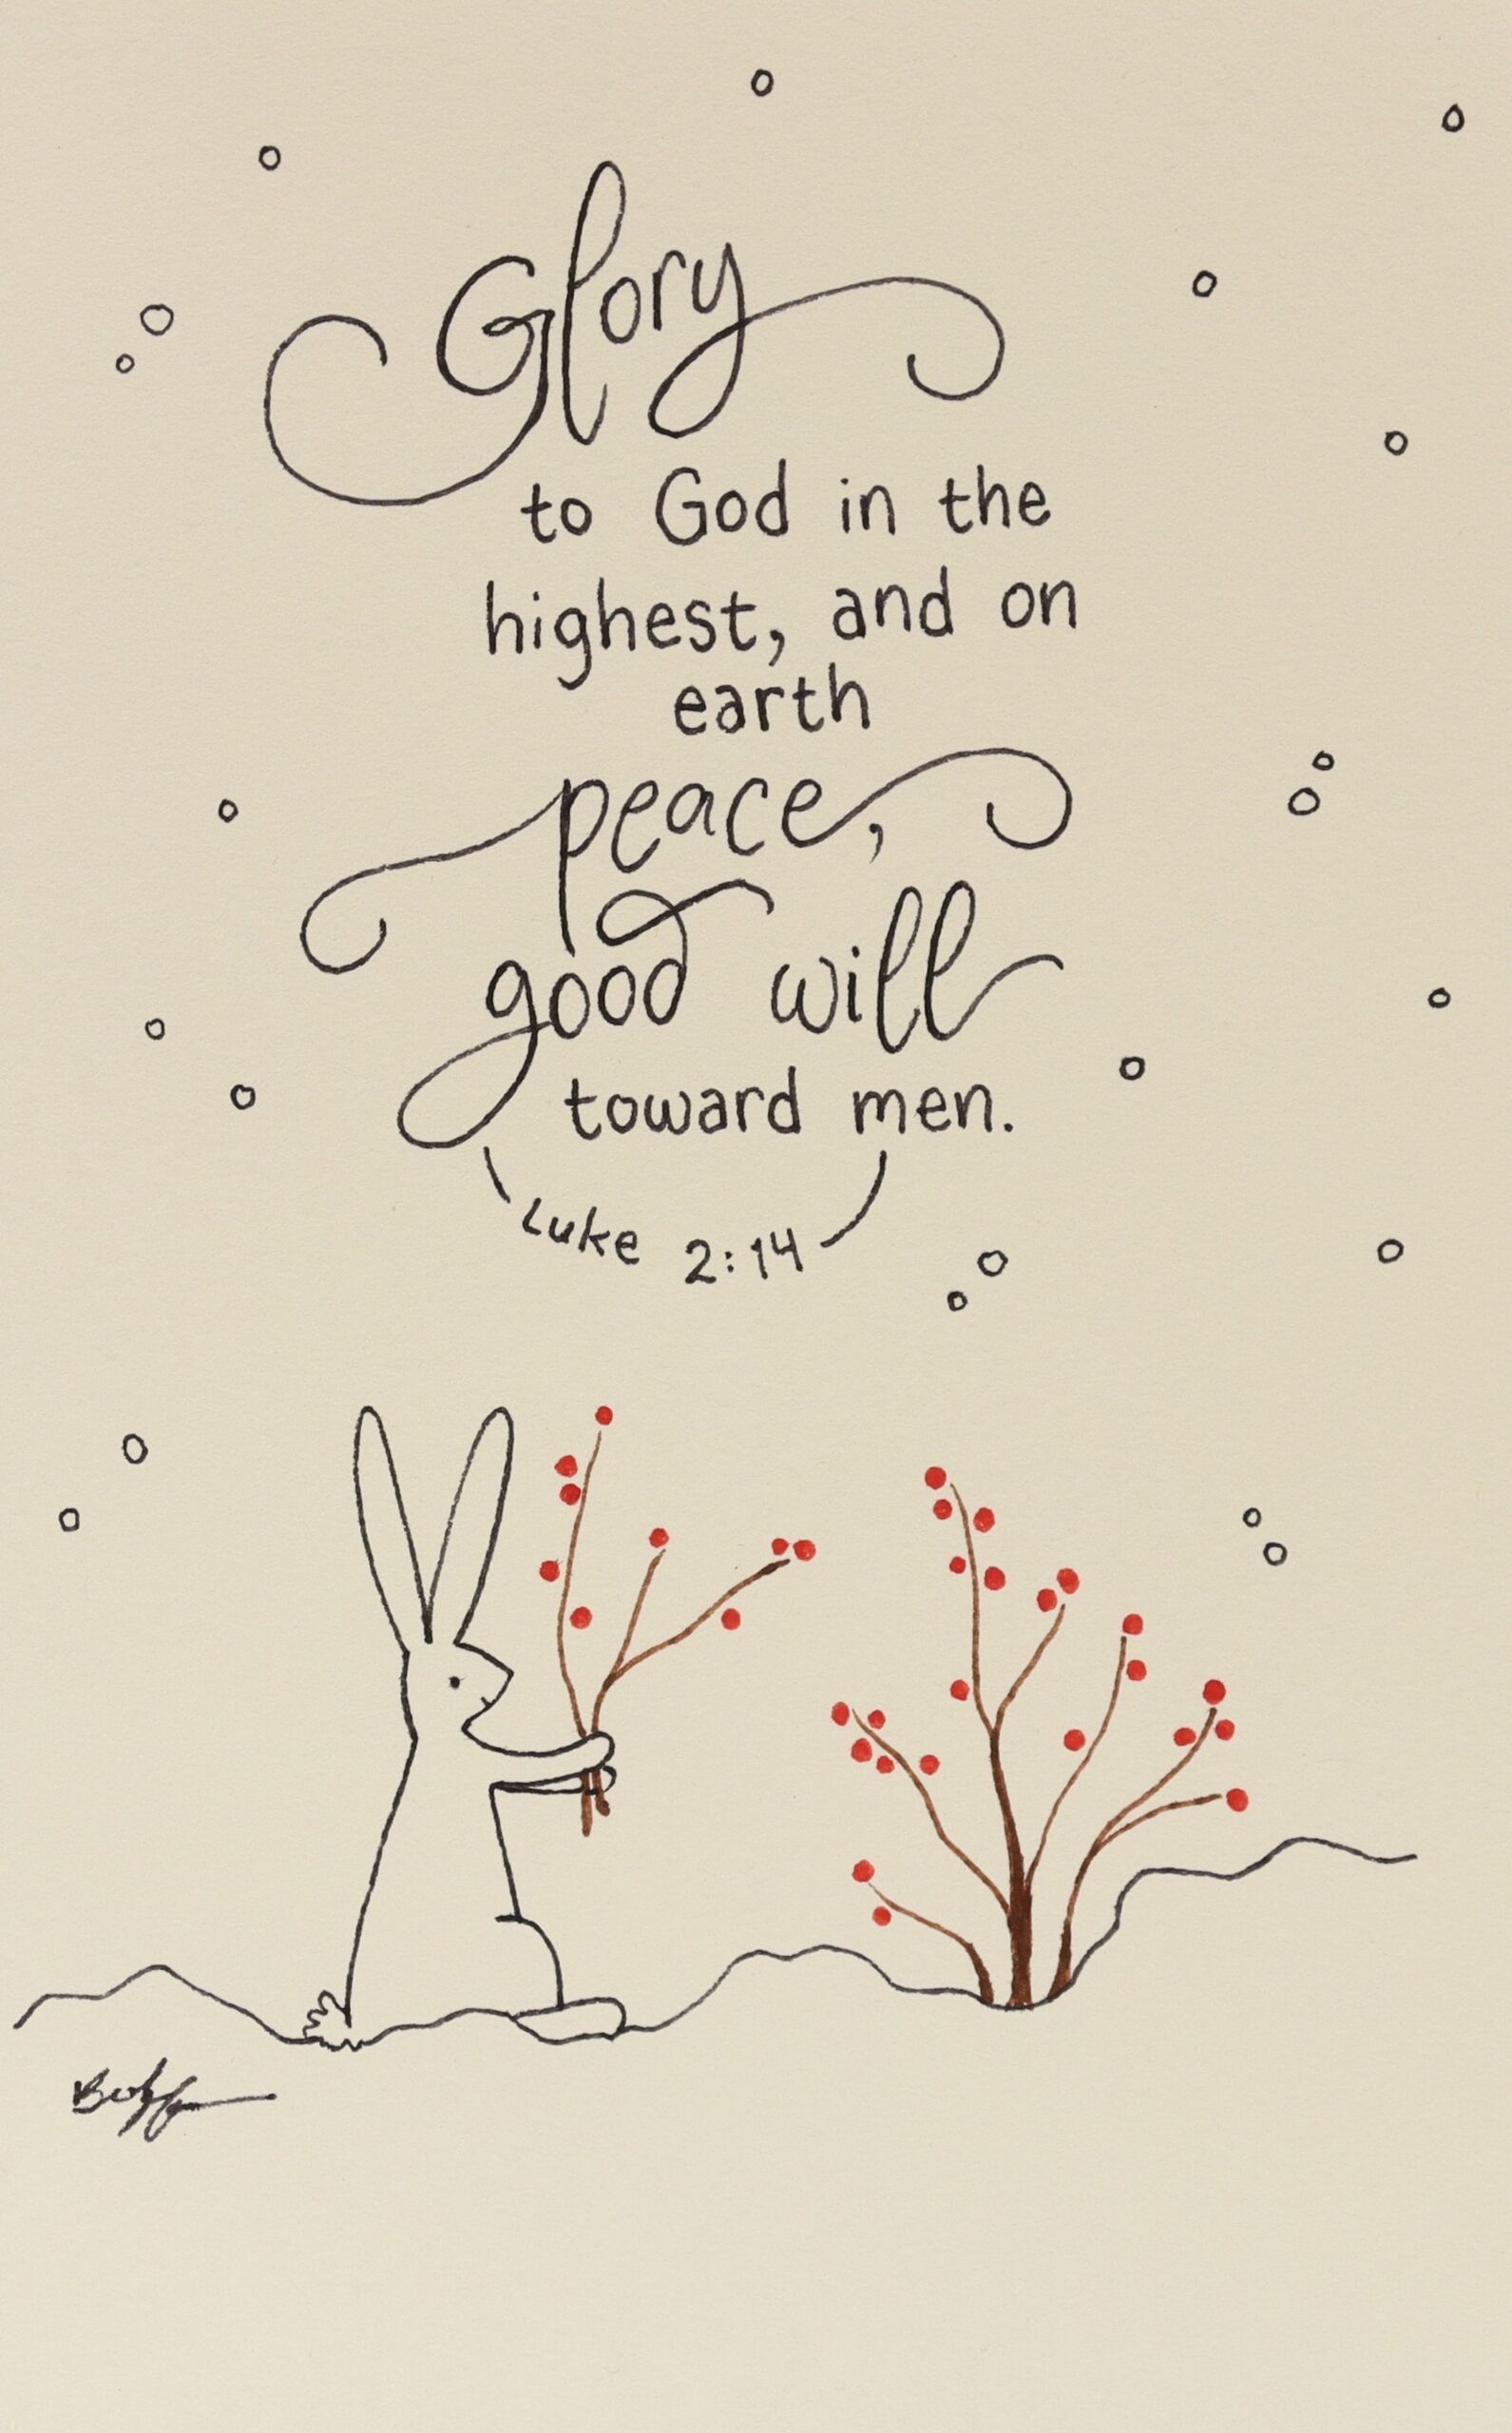 Glory
to God in the
highest, and on
earth
peace,
good will
toward men.
Luke 2:14